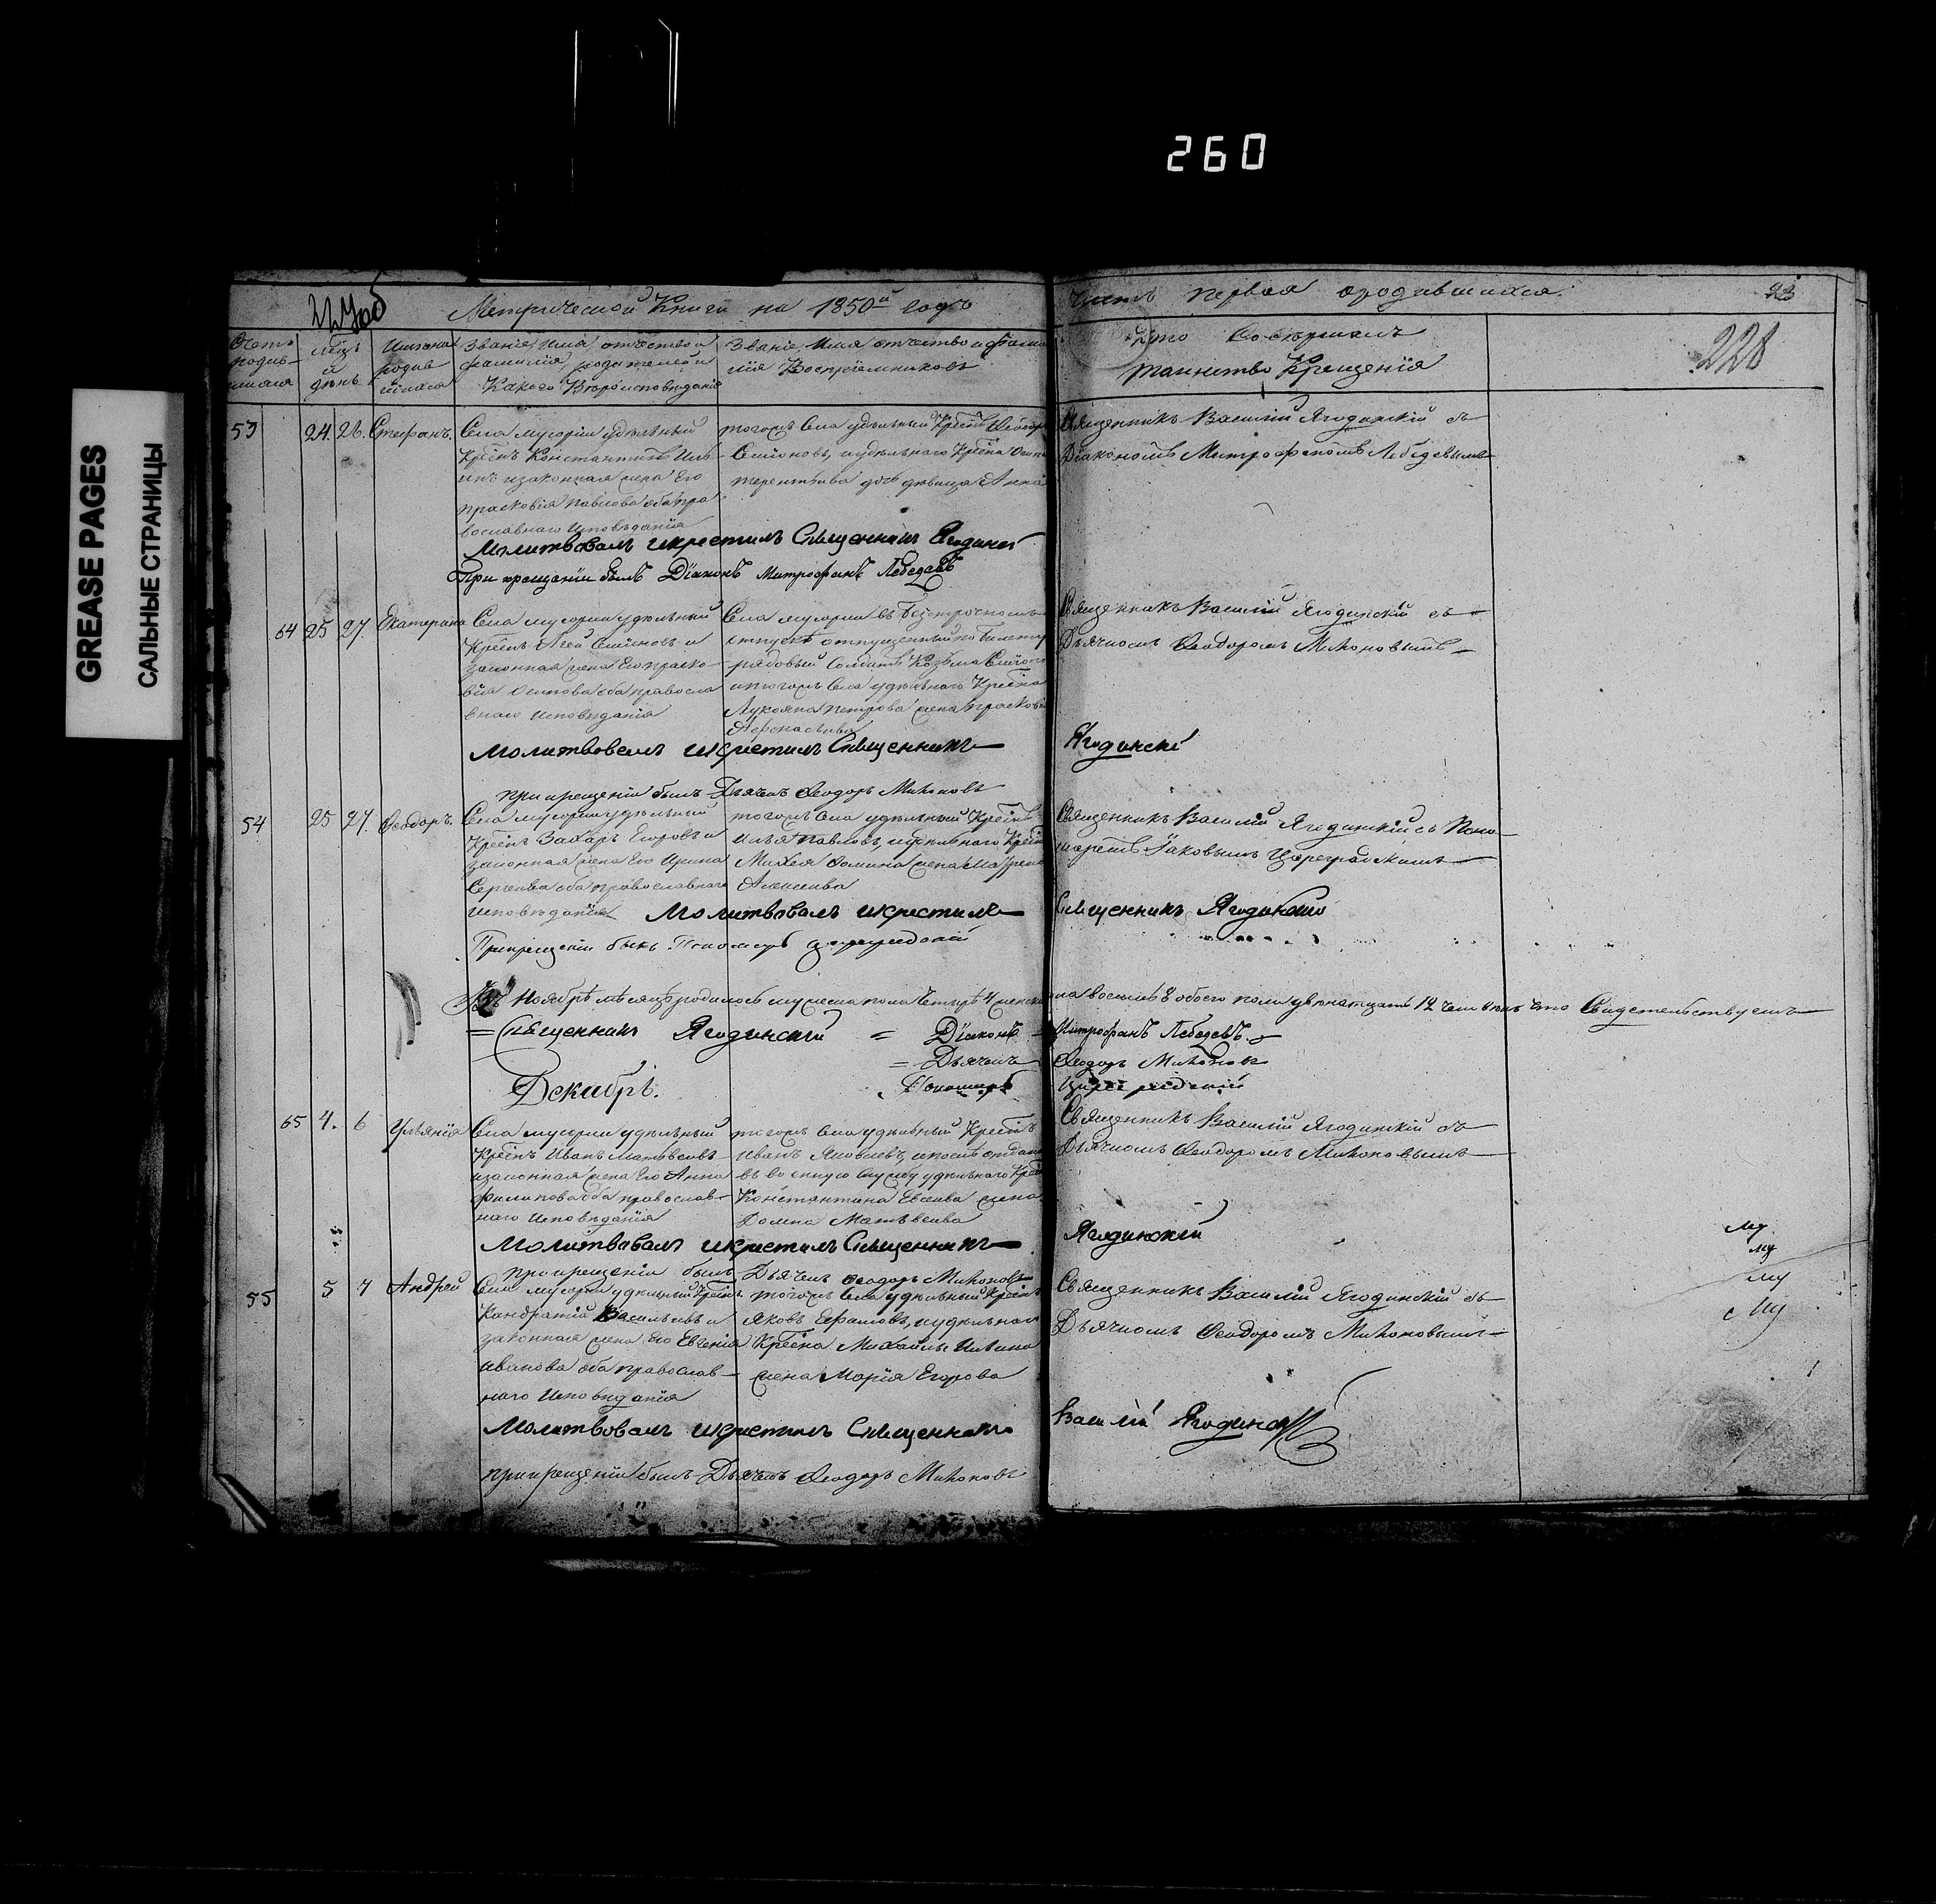 260
GREASE PAGES
САЛЬНЫЕ СТРАНИЦЫ
Метрической Книги на 1850й годъ
Часть первая ородившихся.
23
228
Счетъ родив-шихся
Мѣцъ и день
Имена родившихся
Званіе Имя отчество и фамилія родителей и Какого Вѣроисповѣданія
Званіе Имя отчество и фамилія Воспріемниковъ
Кто Совершалъ таинство Крещенія
53
24. 26.
Стефанъ.
Села мусорки удѣльный
Крестнъ Константинъ
инъ изаконная жена Его
прасковія Павлова оба пра
вославнаго Исповѣданія
тогожъ Села удѣльный Крестнъ
Семіоновъ, иудѣльнаго Крестна Осипа
терентьева дочь дѣвица Анна
Священникъ Василій Ягодинскій съ
Діакономъ Митрофаномъ Лебедевымъ
Молитвовалъ икрестилъ Священникъ Ягодинскій
При крещеніи былъ Діаконъ Митрофанъ Лебедевъ
64 25 27.
Екатерина
Села мусорки удѣльный
Крестнъ Семіоновъ и
законная жена Его праско-
вія Осипова оба правосла
внаго Исповѣданія
Села мусорки въ безсрочномъ
отпускѣ отпущенный по билету
рядовый Солдатъ Козьма
итогожъ Села удѣльнаго Крестна
Лукояна петрова жена прасковія
Афонасьева
Священникъ Василій Ягодинскій съ
Дьячкомъ Феодоромъ Мизоновымъ
Молитвовалъ икрестилъ Священникъ
Ягодинскій
при крещеніи былъ Дьячекъ Феодоръ Мизоновъ
54 25 27.
Феодоръ.
Села мусорки удѣльный
Крестнъ Захаръ Егоровъ и
законная жена Его Ирина
Сергеева оба православнаго
исповѣданія
тогожъ Села удѣльный Крестнъ
Илья павловъ, иудѣльнаго Крестна
Михея Фомина жена
Алексеева
Священникъ Василій Ягодинскій съ Поно-
маремъ Іаковымъ Цареградскимъ
Молитвовалъ икрестилъ
Священникъ Ягодинскій
При крещеніи былъ Пономарь Цареградскій
Въ Ноябрѣ мѣсяцѣ родилось мужеска пола четыре 4 женска
пола восемь 8 обоего пола двѣнатцать 12 человѣкъ что Свидетельствуемъ
Священникъ Ягодинскій
Діаконъ
Митрофанъ Лебедевъ
Дьячекъ
Феодоръ Мизоновъ
Пономарь
Цареградскій
Декабрь.
65 4. 6
Ульянія
Села мусорки удѣльный
Крестнъ Иванъ Матвеевъ
изаконная жена Его Анна
филипова оба православ-
наго Исповѣданія
тогожъ Села удѣльный Крестнъ
Иванъ Яковлевъ,
въ военную службу удѣльнаго
Константина Евсеева жена
Домна Матвеева
Священникъ Василій Ягодинскій съ
Дьячкомъ Феодоромъ Мизоновымъ
Молитвовалъ икрестилъ Священникъ
Ягодинскій
при крещеніи былъ Дьячекъ Феодоръ Мизоновъ
55 5 7
Андрей
Села мусорки удѣльный Крестнъ
Кандратій Васильевъ и
законная жена Его Евгенія
иванова оба православ-
наго Исповѣданія
тогожъ Села удѣльный Крестнъ
Яковъ Ефимовъ, иудѣльнаго
Крестна Михайлы Ильина
жена Марія Егорова
Священникъ Василій Ягодинскій съ
Дьячкомъ Феодоромъ Мизоновымъ
Молитвовалъ икрестилъ Священникъ
Василій Ягодинскій
при крещеніи былъ Дьячекъ Феодоръ Мизоновъ